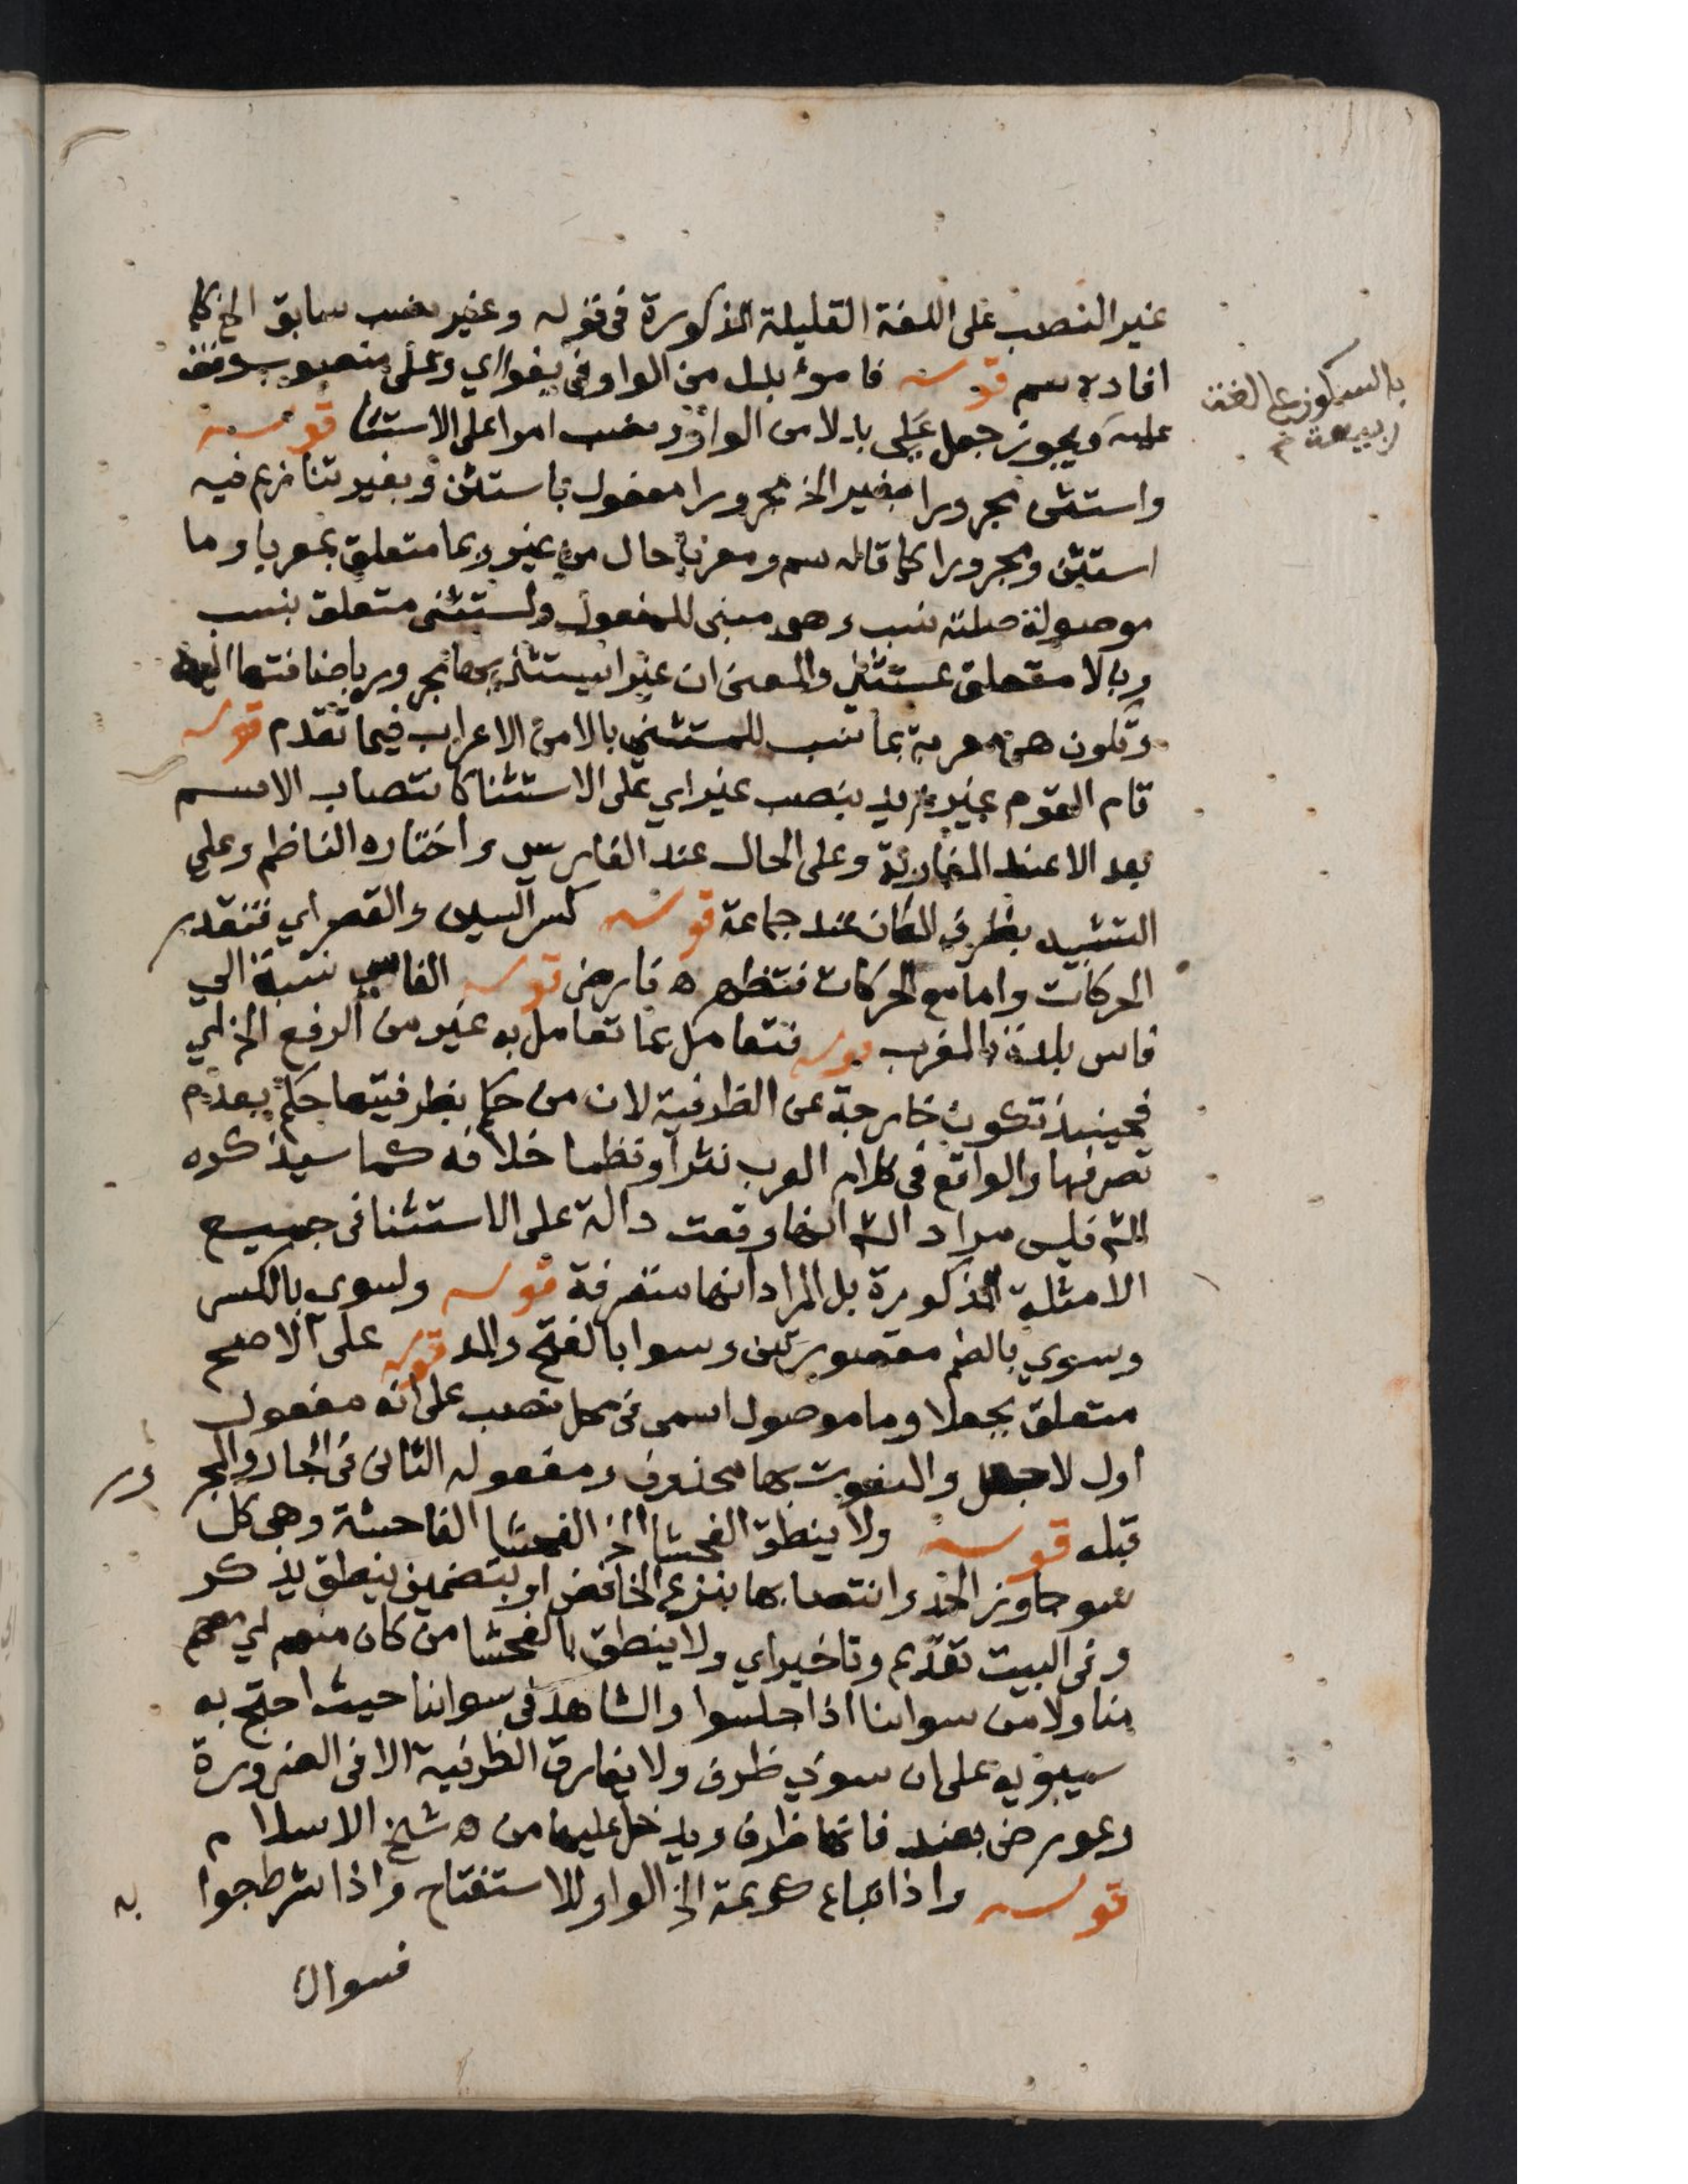 غير النصب على اللغة القليلة المذكورة في قوله وغير نصب سابق الخ كما
افاده سم قوله فامرؤ بدل من الواو في يفوا اي وعلي منصوب ووقف
عليه ويجوز جعل علي بدلا من الواو ونصب امرا على الاستثنا قوله
بالسكون على لغة
ربيعة م
واستثن مجرورا بغير الخ مجرورا مفعول باستثن وبغير تنازع فيه
استثن ومجرورا كما قاله سم ومعربا حال من غير وبما متعلق بمعربا وما
موصولة صلته نسب وهو مبني للمفعول ولمستثنى متعلق بنسب
وبالا متعلق بمستثنى والمعنى ان غيرا يستثنى بها مجرور باضافتها اليه
وتكون هي معربة بما نسب للمستثنى بالا من الاعراب فيما تقدم قوله
قام القوم غير زيد بنصب غير اي على الاستثنا كانتصاب الاسم
بعد الا عند المغاربة وعلى الحال عند الفارسي واختاره الناظم وعلي
التشبيه بظرف المكان عند جماعة قوله كسر السين والقصر اي فتقدر
الحركات واما مع الحركات فتظهر ه فارض قوله الفاسي نسبة الي
فاس بلدة بالمغرب قوله فتعامل بما تعامل به غير من الرفع الخ اي
فحينئذ تكون خارجة عن الظرفية لان من حكم بظرفيتها حكم بعدم
تصرفها والواقع في كلام العرب نثرا ونظما خلافه كما سيذكره
الش فليس مراد الش انها وقعت دالة على الاستثنا في جميع
الامثلة المذكورة بل المراد انها متصرفة قوله ولسوى بالكسر
وسوي بالضم مقصورتين وسوا بالفتح والمد قوله على الاصح
متعلق بجعلا وما موصول اسمى في محل نصب على انه مفعول
أول لاجعل والمنعوت بها محذوف ومفعوله الثانى في الجار والمجر ور
قبله قوله ولا ينطق الفحشا الخ الفحشا الفاحشة وهي كل
سو جاوز الحد وانتصابها بنزع الخافض او بتضمين ينطق يذكر
وفي البيت تقديم وتاخير اي ولا ينطق بالفحشا من كان منهم اي معهم
منا ولا من سوائنا اذا جلسوا والشاهد في سوائنا حيث احتج به
سيبويه على ان سوى ظرف ولا يفارق الظرفية الا في الضرورة
وعورض بعند فانها ظرف ويدخل عليها من ه شيخ الاسلام
قوله واذا تباع كريمة الخ الواو للاستفتاح واذا شرط جوا به
فسواك